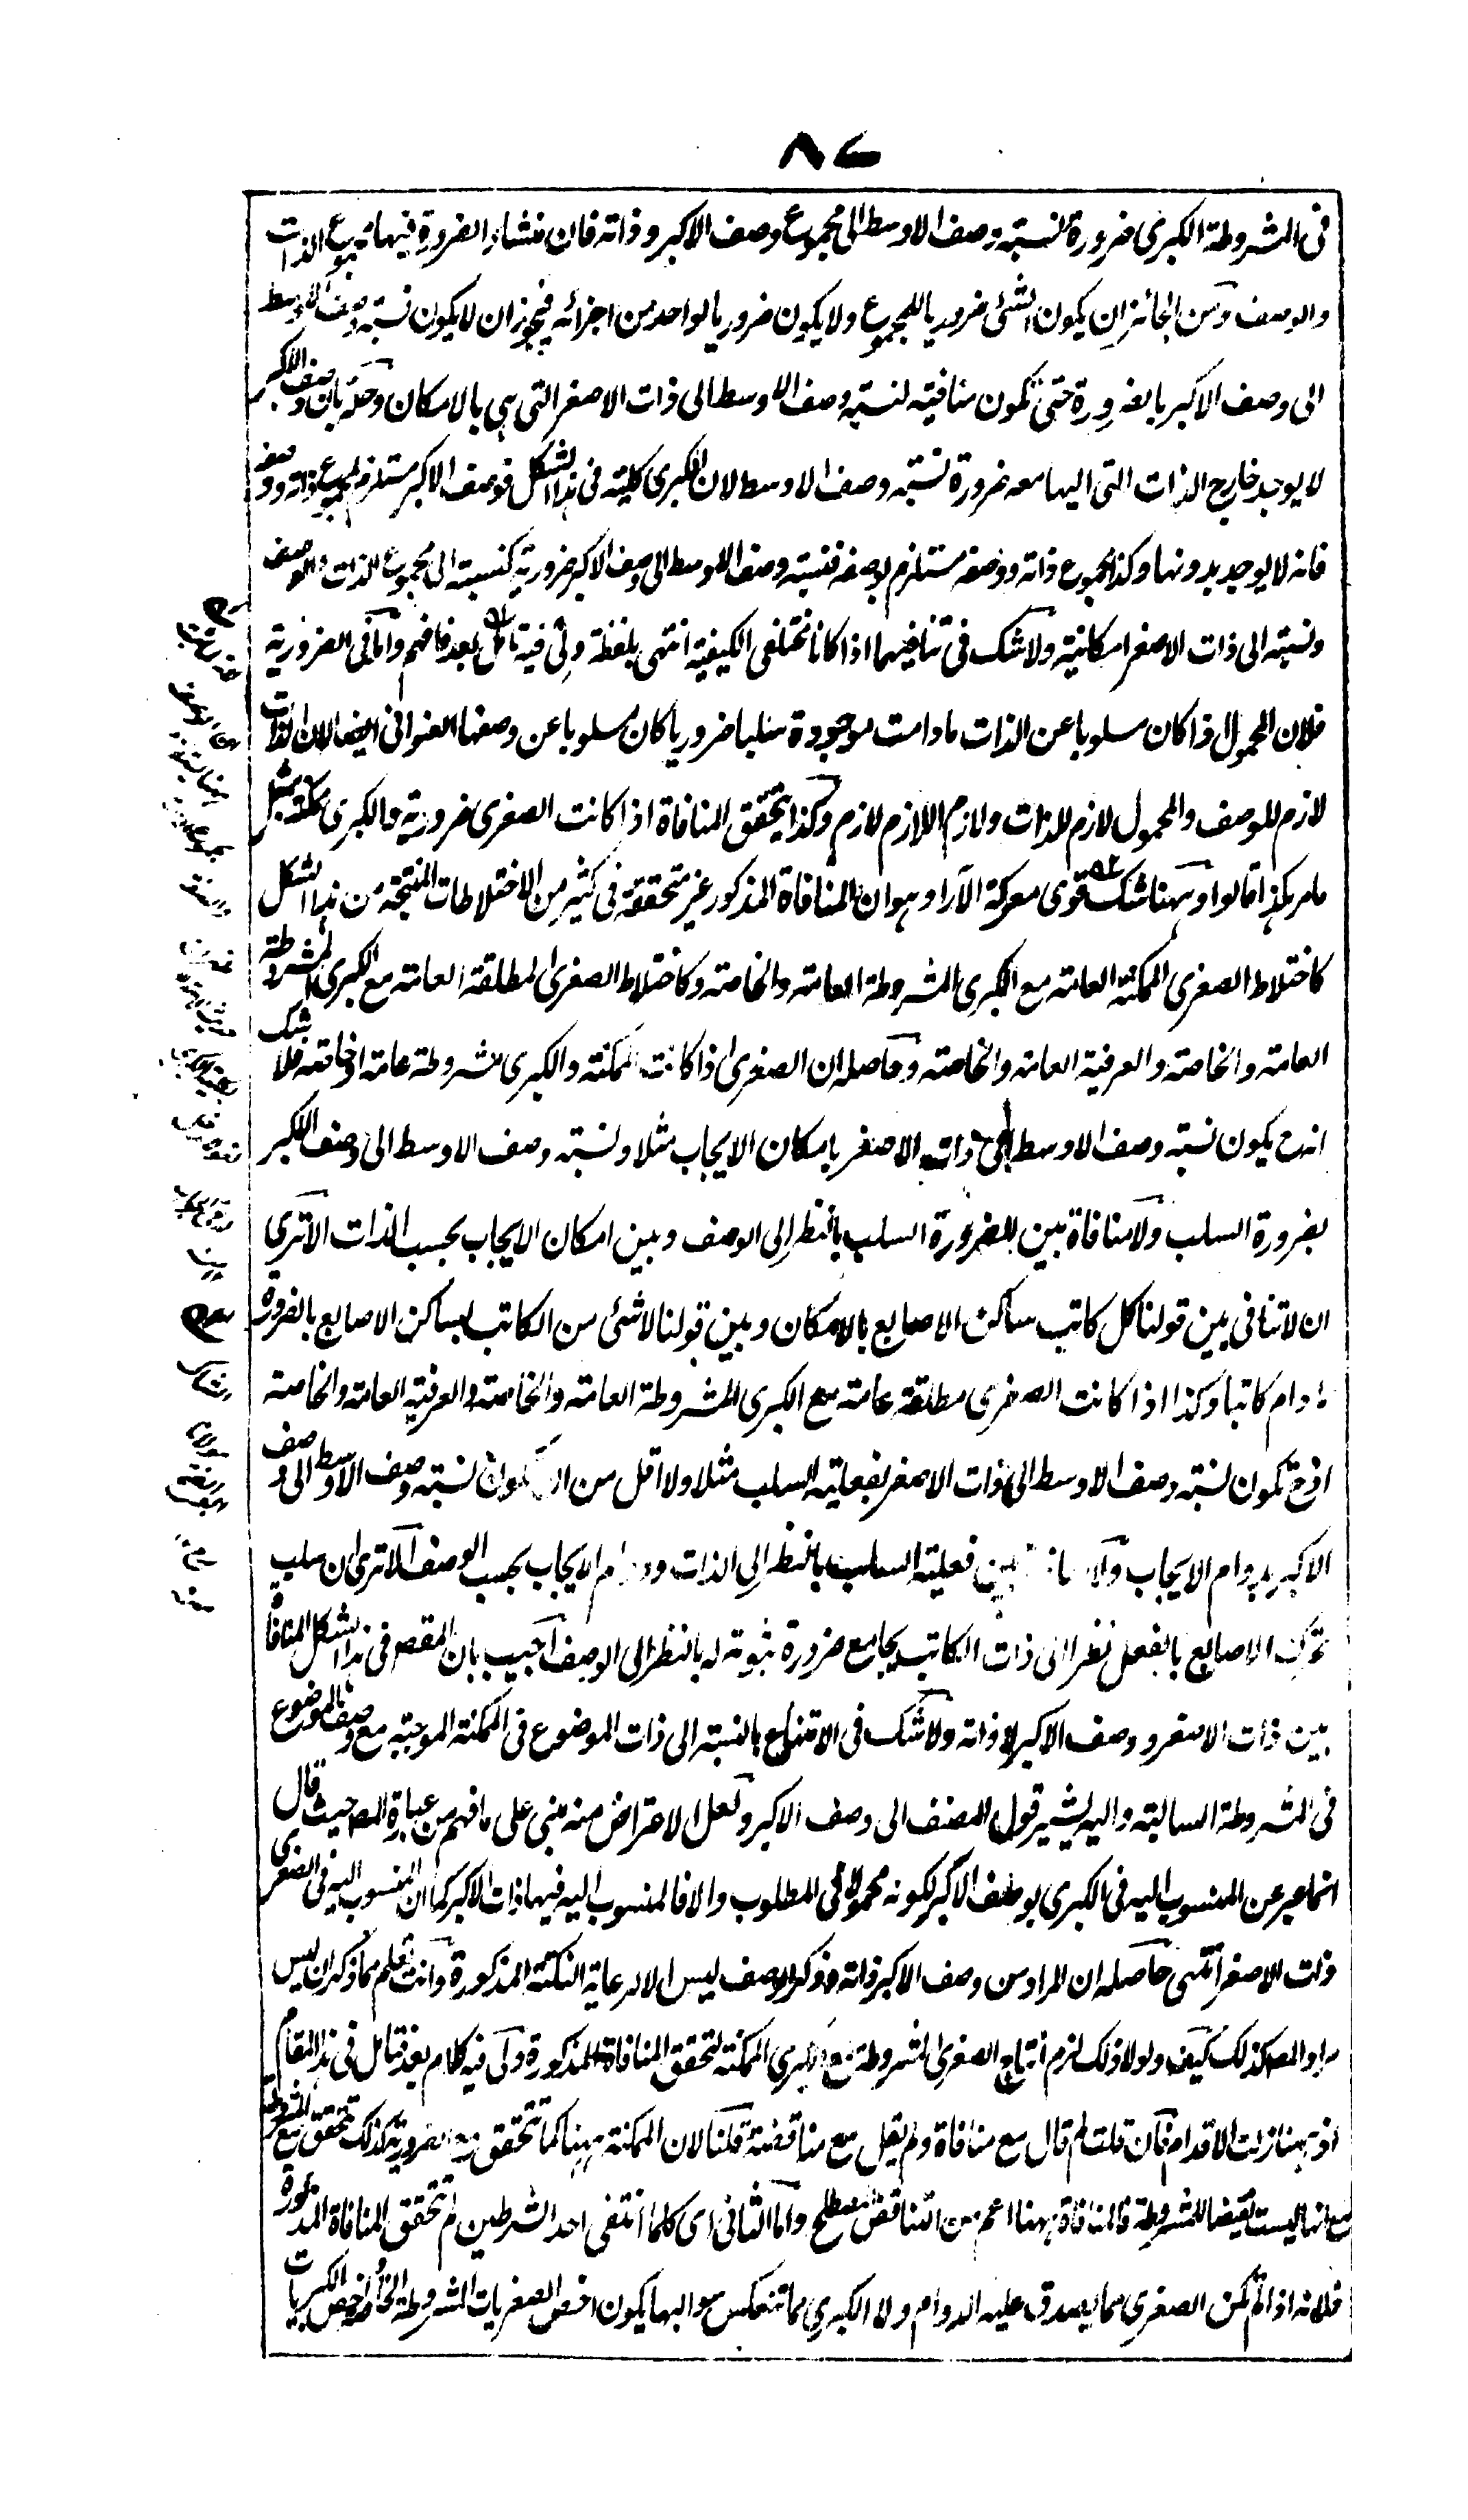 ٨٧
فی المشروطة الکبری ضرورة نسبة وصف الاوسط الی مجموع وصف الاکبر وذاته فان منشاء الضرورة فیها مجموع الذات
والوصف ومن الجائز ان یکون الشئ ضروریا للمجموع ولا یکون ضروریا لواحد من اجزائه فیجوز ان لا یکون نسبة وصف الاوسط
الی وصف الاکبر بالضرورة حتی تکون منافیة لنسبة وصف الاوسط الی ذات الاصغر التی هی بالامکان وحله بان وصف الاکبر
لا یوجد خارج الذات التی الیها معه ضرورة نسبة وصف الاوسط لان الکبری کلیة فی هذا الشکل فوصف الاکبر مستلزم لمجموع ذاته ووصفه
فانه لا یوجد بدونها وکذا مجموع ذاته ووصفه مستلزم لوصفه فنسبة وصف الاوسط الی وصف الاکبر ضروریة کنسبته الی مجموع الذات والوصف
ونسبته الی ذات الاصغر امکانیة ولا شک فی تنافیهما اذا کانا مختلفی الکیفیة انتهی بلفظه ولی فیه تامل بعد فافهم واما فی الضروریة
فلان المحمول اذا کان مسلوبا عن الذات ما دامت موجودة سلبا ضروریا کان مسلوبا عن وصفها العنوانی ایضا لان الذات
لازم للوصف والمحمول لازم للذات ولازم اللازم لازم وکذا یتحقق المنافاة اذا کانت الصغری ضروریة والکبری ممکنة بمثل
ما مر هکذا قالوا وههنا شک قوی معرکة الآراء وهو ان المنافاة المذکور غیر متحققة فی کثیر من الاختلاطات المنتجة من هذا الشکل
کاختلاط الصغری الممکنة العامة مع الکبری المشروطة العامة والخاصة وکاختلاط الصغری المطلقة العامة مع الکبری المشروطة
العامة والخاصة والعرفیة العامة والخاصة وحاصله ان الصغری اذا کانت ممکنة والکبری مشروطة عامة او خاصة فلا شک
انه ح یکون نسبة وصف الاوسط الی ذات الاصغر بامکان الایجاب مثلا ونسبة وصف الاوسط الی وصف الاکبر
بضرورة السلب ولا منافاة بین الضرورة السلب بالنظر الی الوصف وبین امکان الایجاب بحسب الذات الا تری
ان لا تنافی بین قولنا کل کاتب ساکن الاصابع بالامکان وبین قولنا لا شئ من الکاتب بساکن الاصابع بالضرورة
ما دام کاتبا وکذا اذا کانت الصغری مطلقة عامة مع الکبری المشروطة العامة والخاصة والعرفیة العامة والخاصة
اذ ح تکون نسبة وصف الاوسط الی ذات الاصغر بفعلیة السلب مثلا ولا اقل من ان تکون نسبة وصف الاوسط الی وصف
الاکبر بدوام الایجاب ولا منافاة بین فعلیة السلب بالنظر الی الذات ودوام الایجاب بحسب الوصف الا تری ان سلب
تحرک الاصابع بالفعل نظرا الی ذات الکاتب یجامع ضرورة ثبوته له بالنظر الی الوصف اجیب بان المقص فی هذا الشکل المنافاة
بین ذات الاصغر ووصف الاکبر لا ذاته ولا شک فی الامتناع بالنسبة الی ذات الموضوع فی الممکنة الموجبة مع وصف الموضوع
فی المشروطة السالبة والیه یشیر قول المصنف الی وصف الاکبر ولعل الاعتراض منه مبنی علی ما فهم من عبارة المص حیث قال
انما عبر عن المنسوب الیه فی الکبری بوصف الاکبر لکونه محمولا فی المطلوب والا فالمنسوب الیه فیها ذات الاکبر کما ان المنسوب الیه فی الصغری
ذات الاصغر انتهی حاصله ان المراد من وصف الاکبر ذاته وذکر الوصف لیس الا لرعایة النکتة المذکورة وانت تعلم مما ذکر ان لیس
مراد المص کذلک کیف ولولا ذلک لزم انتاج الصغری المشروطة مع الکبری الممکنة لتحقق المنافاة المذکورة ولی فیه کلام بعد تامل فی هذا المقام
اذ ههنا زلت الاقدام فان قلت لم قال مع منافاة ولم یقل مع مناقضة قلنا لان الممکنة ههنا کما تتحقق مع الضروریة کذلک تتحقق مع المشروطة
مع انها لیست نقیضا للمشروطة فالمنافاة ههنا اعم من التناقض المصطلح واما الثانی ای کلما انتفی احد الشرطین لم تتحقق المنافاة المذکورة
فلانه اذا لم تکن الصغری مما یصدق علیه الدوام ولا الکبری مما تنعکس سوالبها یکون اخص الصغریات المشروطة الخاصة واخص الکبریات